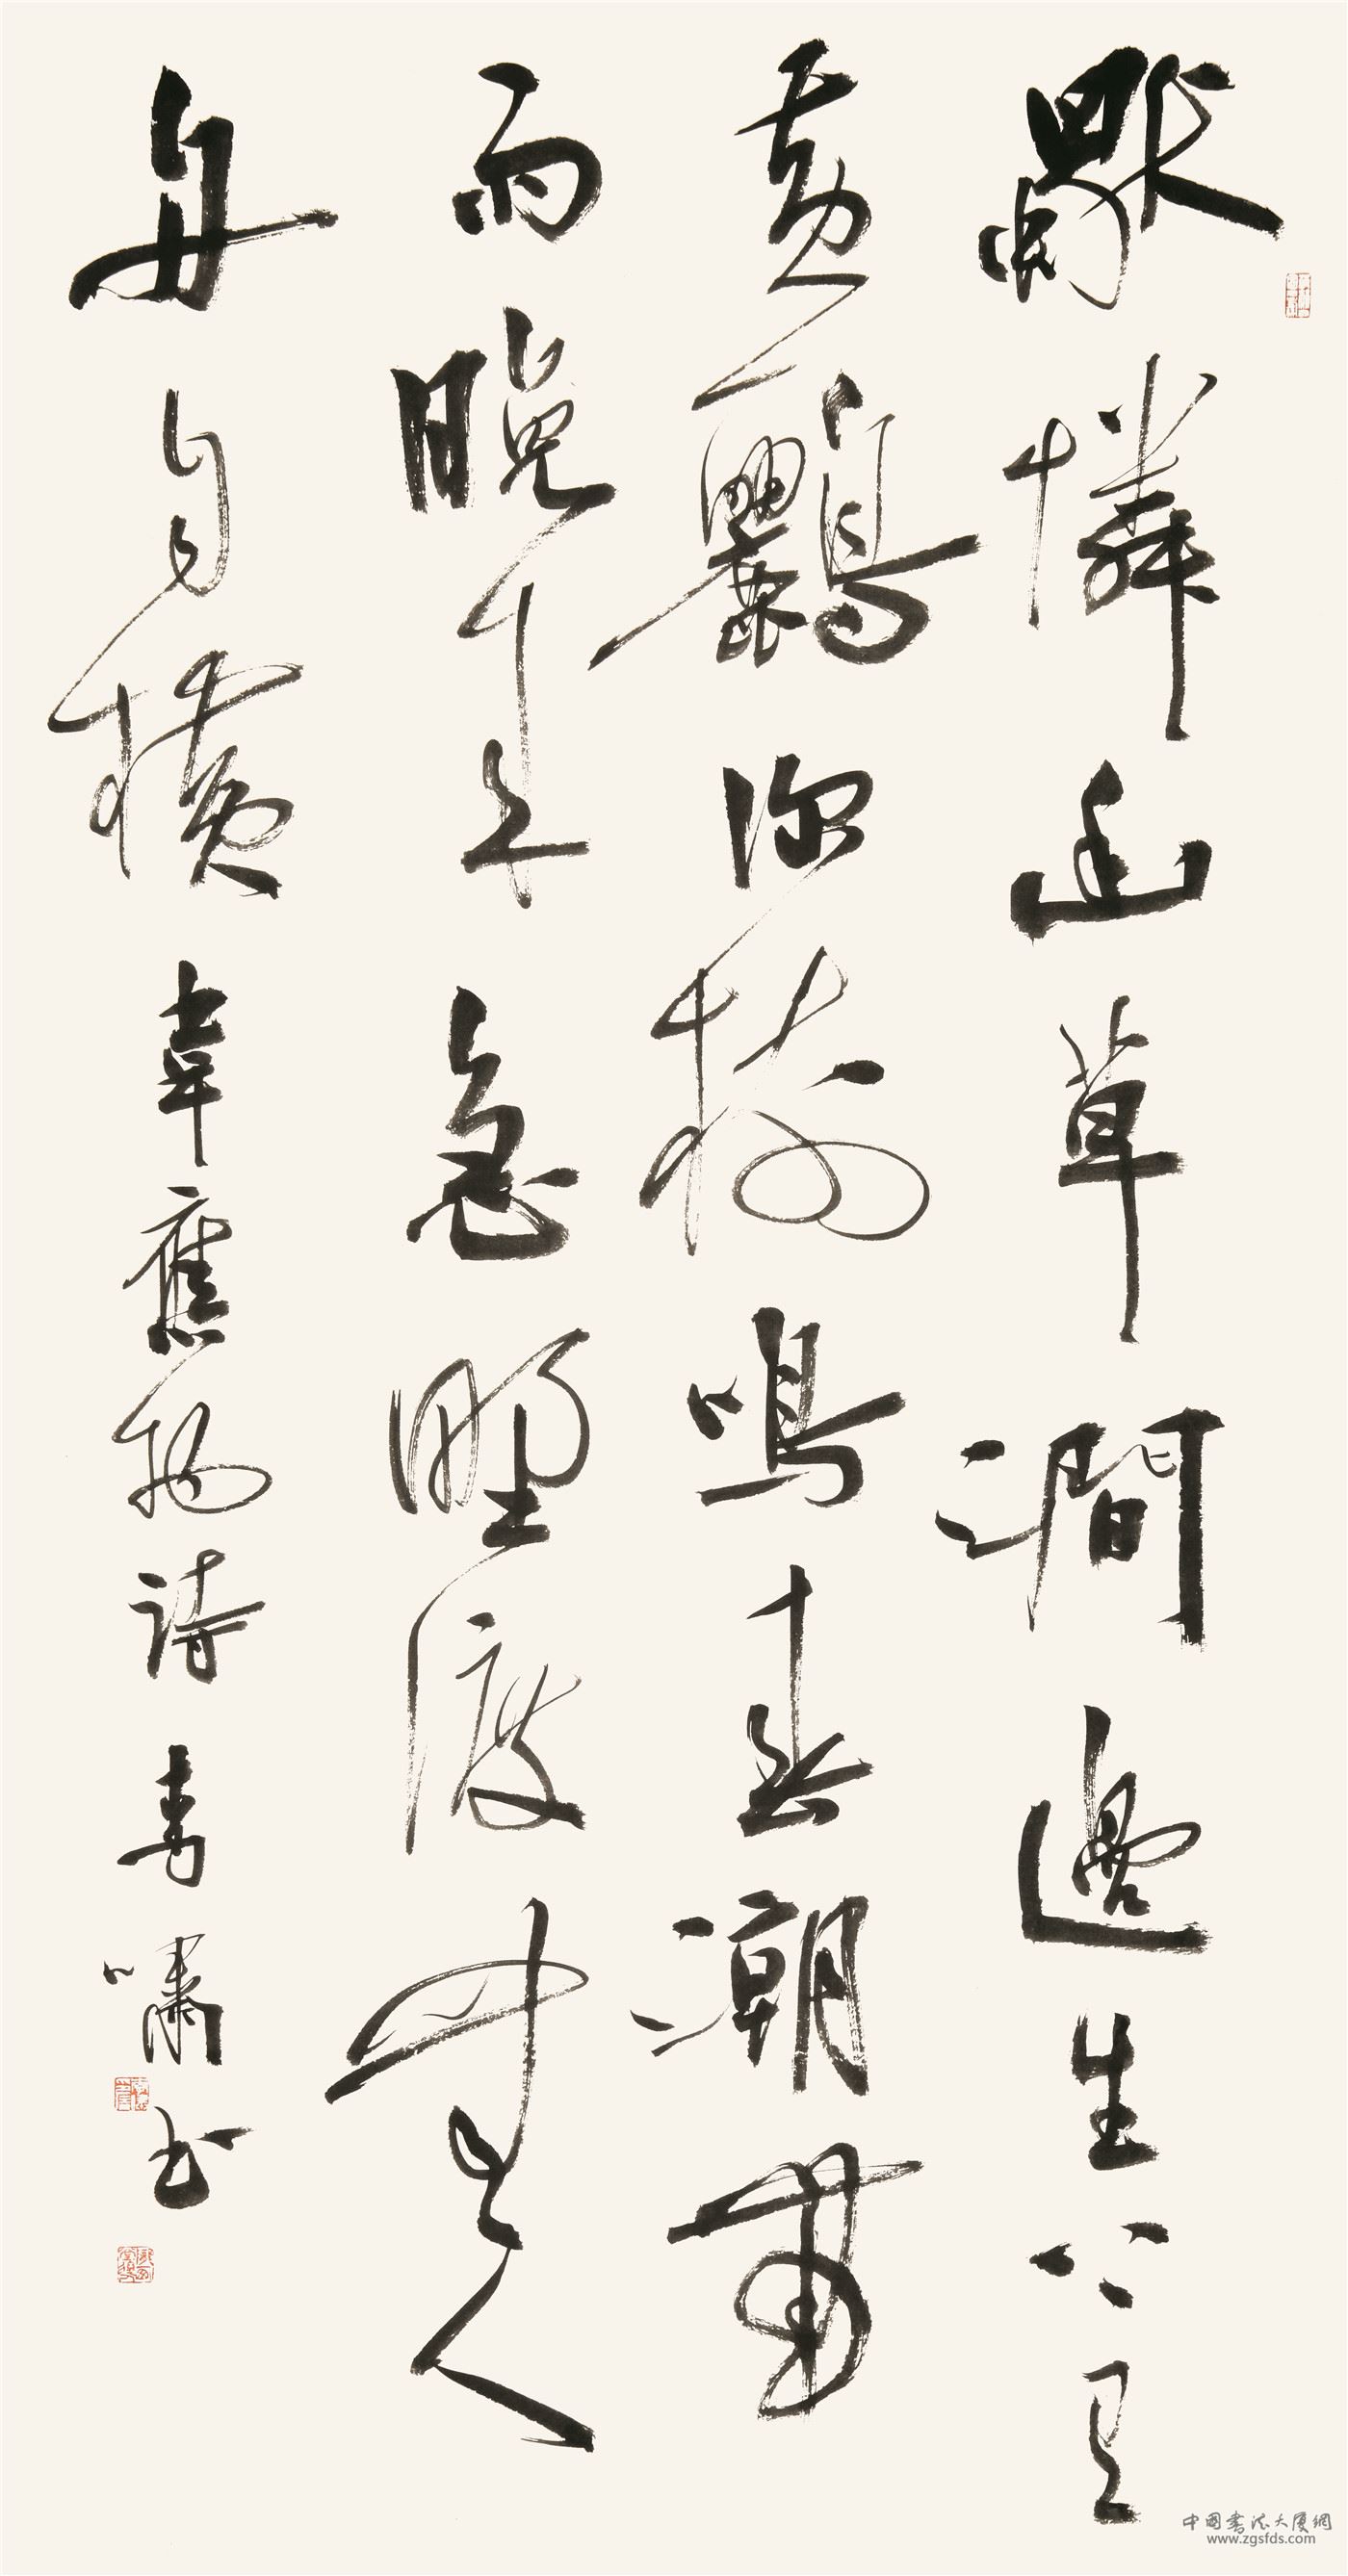 獨憐幽草澗邊生上有
黃鸝深樹鳴春潮帶
雨晚來急野渡無人
舟自橫 韋應物詩 李嘯書
中國書法大廈網
www.zgsfds.com